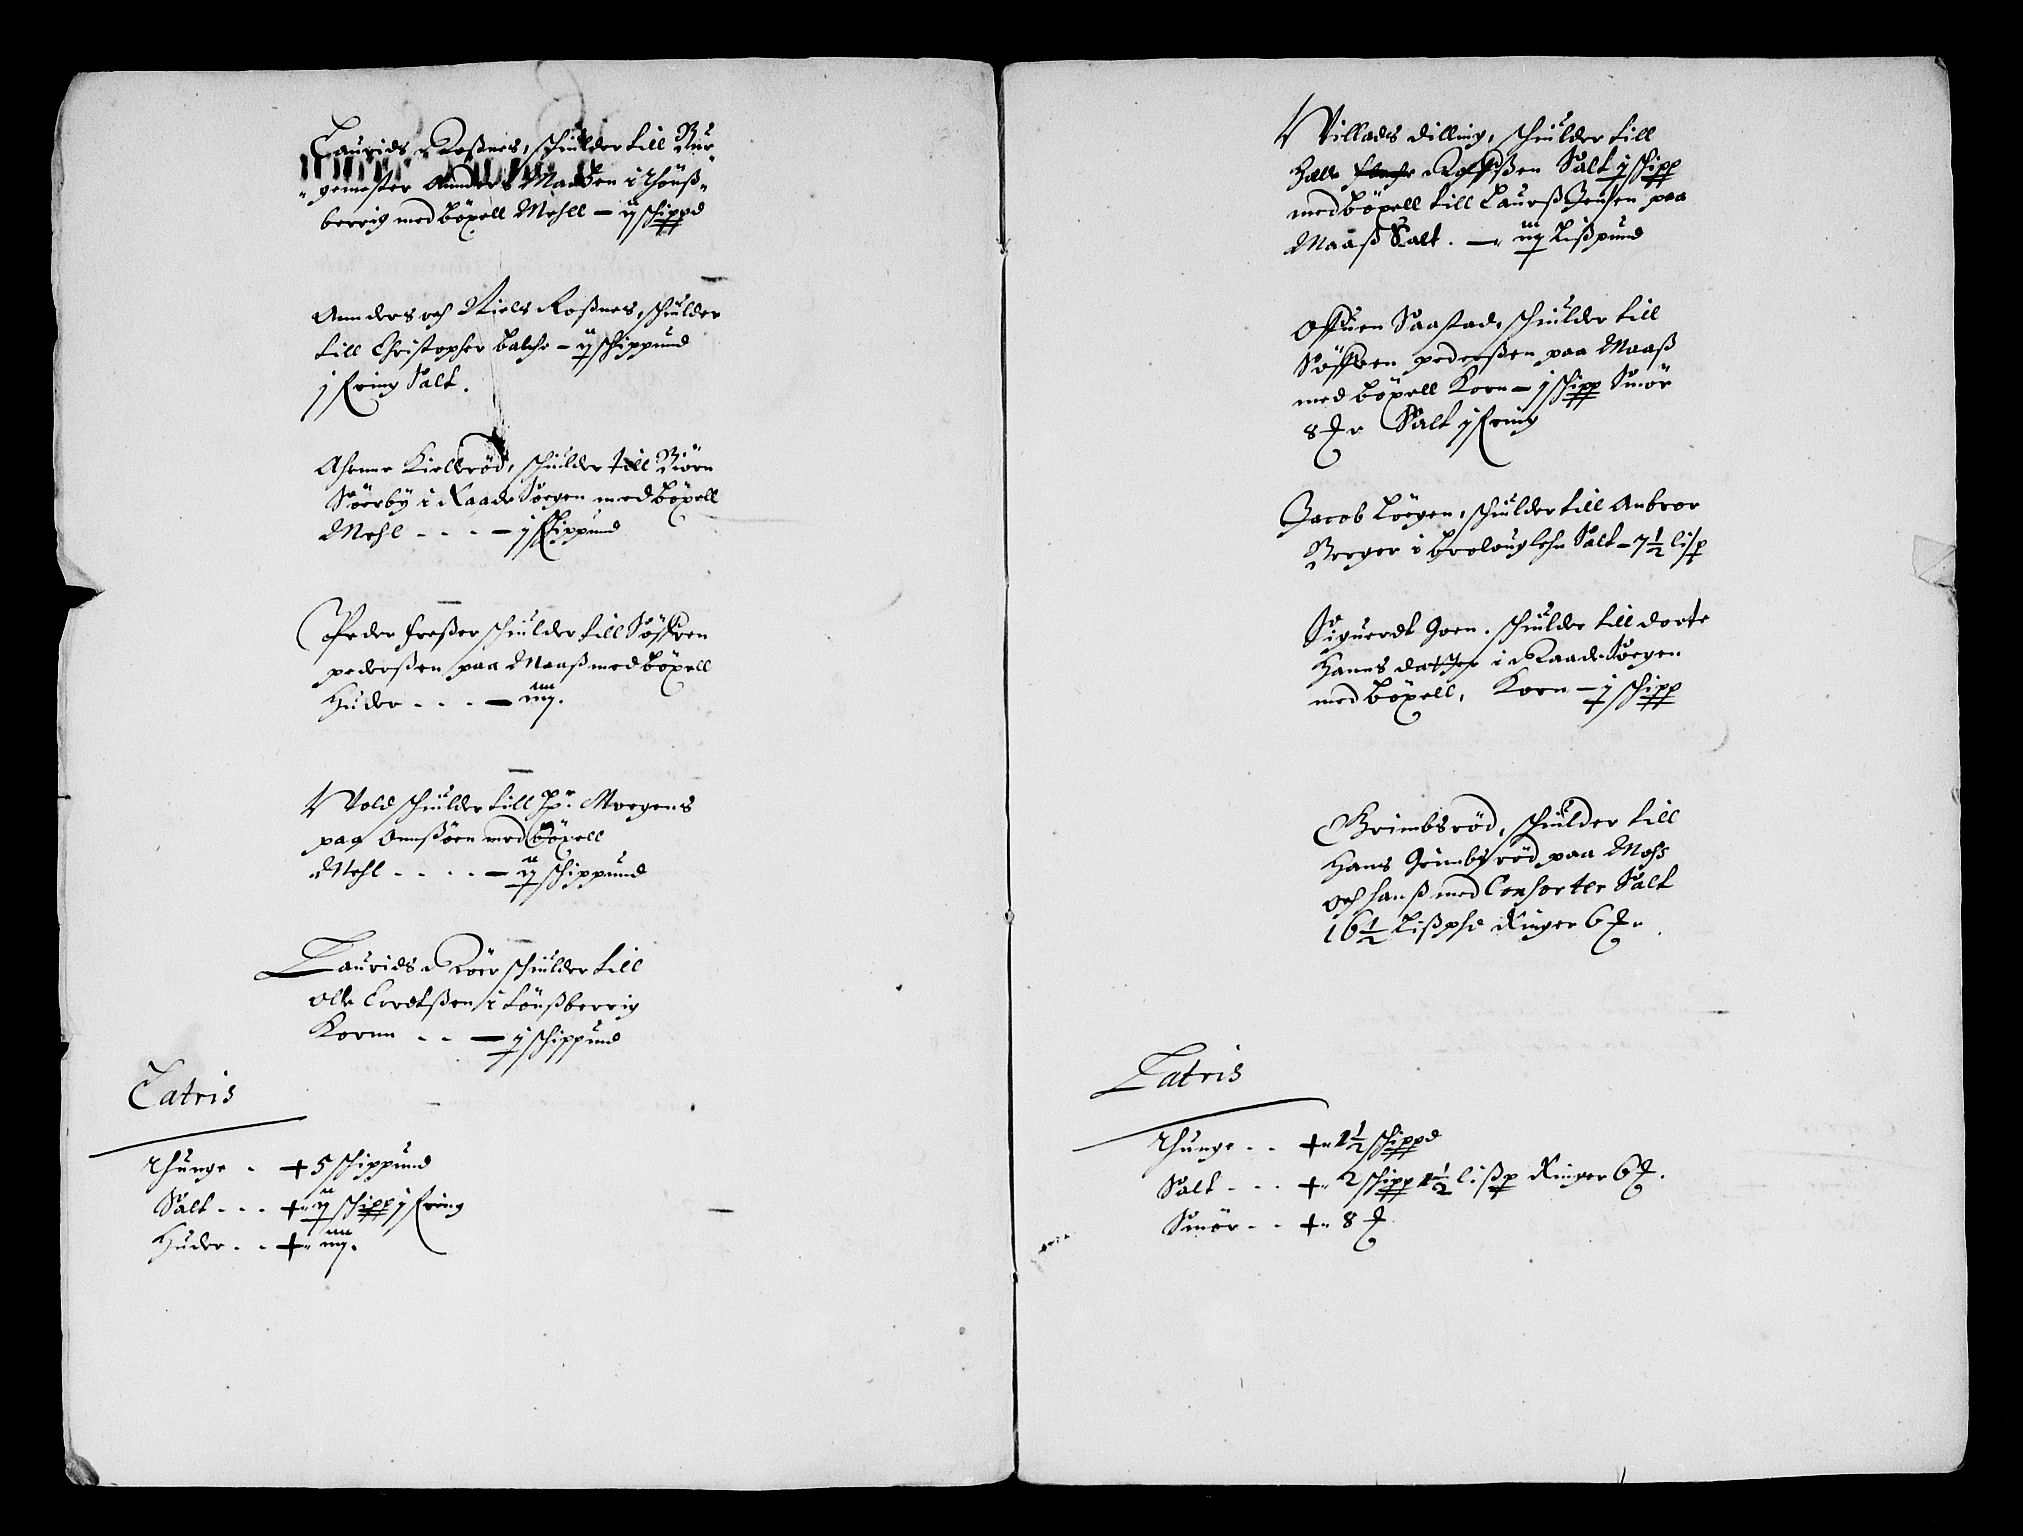 Laurids Roßnes, schulder till Bur-
gemester Annders Madßen i Thönß-
berrig med böxell Mehll - ij schippd
Annders och Niels Roßnes, schulder
till Christopher balche - ij schippund
j fring Salt.
Schulder till Biörn
Söerby i Raade Soegen med böxell
Mehl - - - - j schippund
Peder freßer schulder till Söffren
pederßen paa Maaß med böxell
Huder - - - - iiij.
Vold schulder till Hr. Moegens
paa Onnsöen med böxell
Mehl - - - - - ij schippund
Laurids Röer schulder till
Olle Eredtßen i tönßberrig
Kornn - - - j schippund
Latris
Thunge - + 5 schippund
Salt - - - + ij schipp j fring
Huder - - + iiij.
Villads Dilling, schulder till
Halle Roffßen Salt j schipp
med böxell till Laurß Jensen paa
Maaß Salt. - iij Lißpund
Offuen Saastad, schulder till
Söffren pederßen paa Maaß
med böxell Korn - j schipp Smör
8 Salt j fring
Jacob Löegen, schulder till Anbror
Berger i Lehn Salt - 7 1/2 lisp
Siguerdt Goen. schulder till dorte
Hanns datter i Raade Soegen
med böxell, Korn - j schipp
Grimbsröd, schulder till
Hans Grimbsröd paa Moss
och hanß med Consorter Salt
16 1/2 Lißphd Ringer 6
Latris
Thunge - - + 1 1/2 schippd
Salt - - - + 2 schipp 1 1/2 lißp Ringer 6
Smör - - + 8